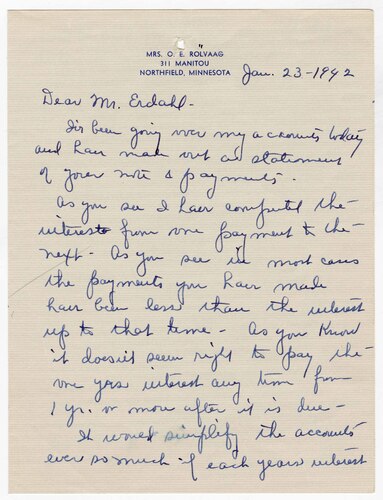 MRS. O. E. RÖLVAAG
311 MANITOU
NORTHFIELD, MINNESOTA
Jan. 23-1942
Dear Mr. Erdahl-
I've been going over my accounts today
and have made out a statement
of your note & payments.
As you see I have computed the
interest from one payment to the
next - As you see in most cases
the payments you have made
have been less than the interest
up to that time - As you know
it doesn't seem right to pay the
one yrs interest any time from
1 yr. or more after it is due -
It would simplify the accounts
ever so much if each years interest